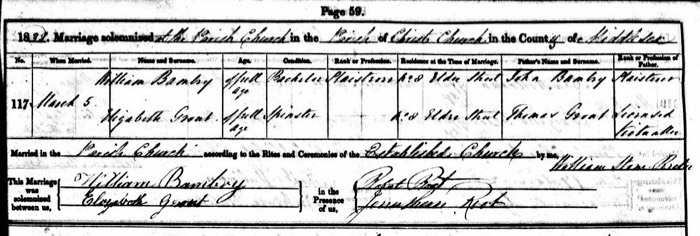 Page 59.
Marriage solemnised at the Parish Church in the Parish of Christ Church in the County of Middlesex
No. When Married. Name and Surname. Age. Condition. Rank or Profession. Residence at the Time of Marriage. Father's Name and Surname. Rank or Profession of Father.
William Bamby of full age Bachelor Plaisterer No 8 Elder Street John Bamby Plaisterer
117 March 5
Elizabeth Grout of full age Spinster No 8 Elder Street Thomas Grout Licensed Victualler
Married in the Parish Church according to the Rites and Ceremonies of the Established Church by me, William Stone Rector
This Marriage was solemnised between us,
William Bamby
Elizabeth Grout
in the Presence of us,
Root